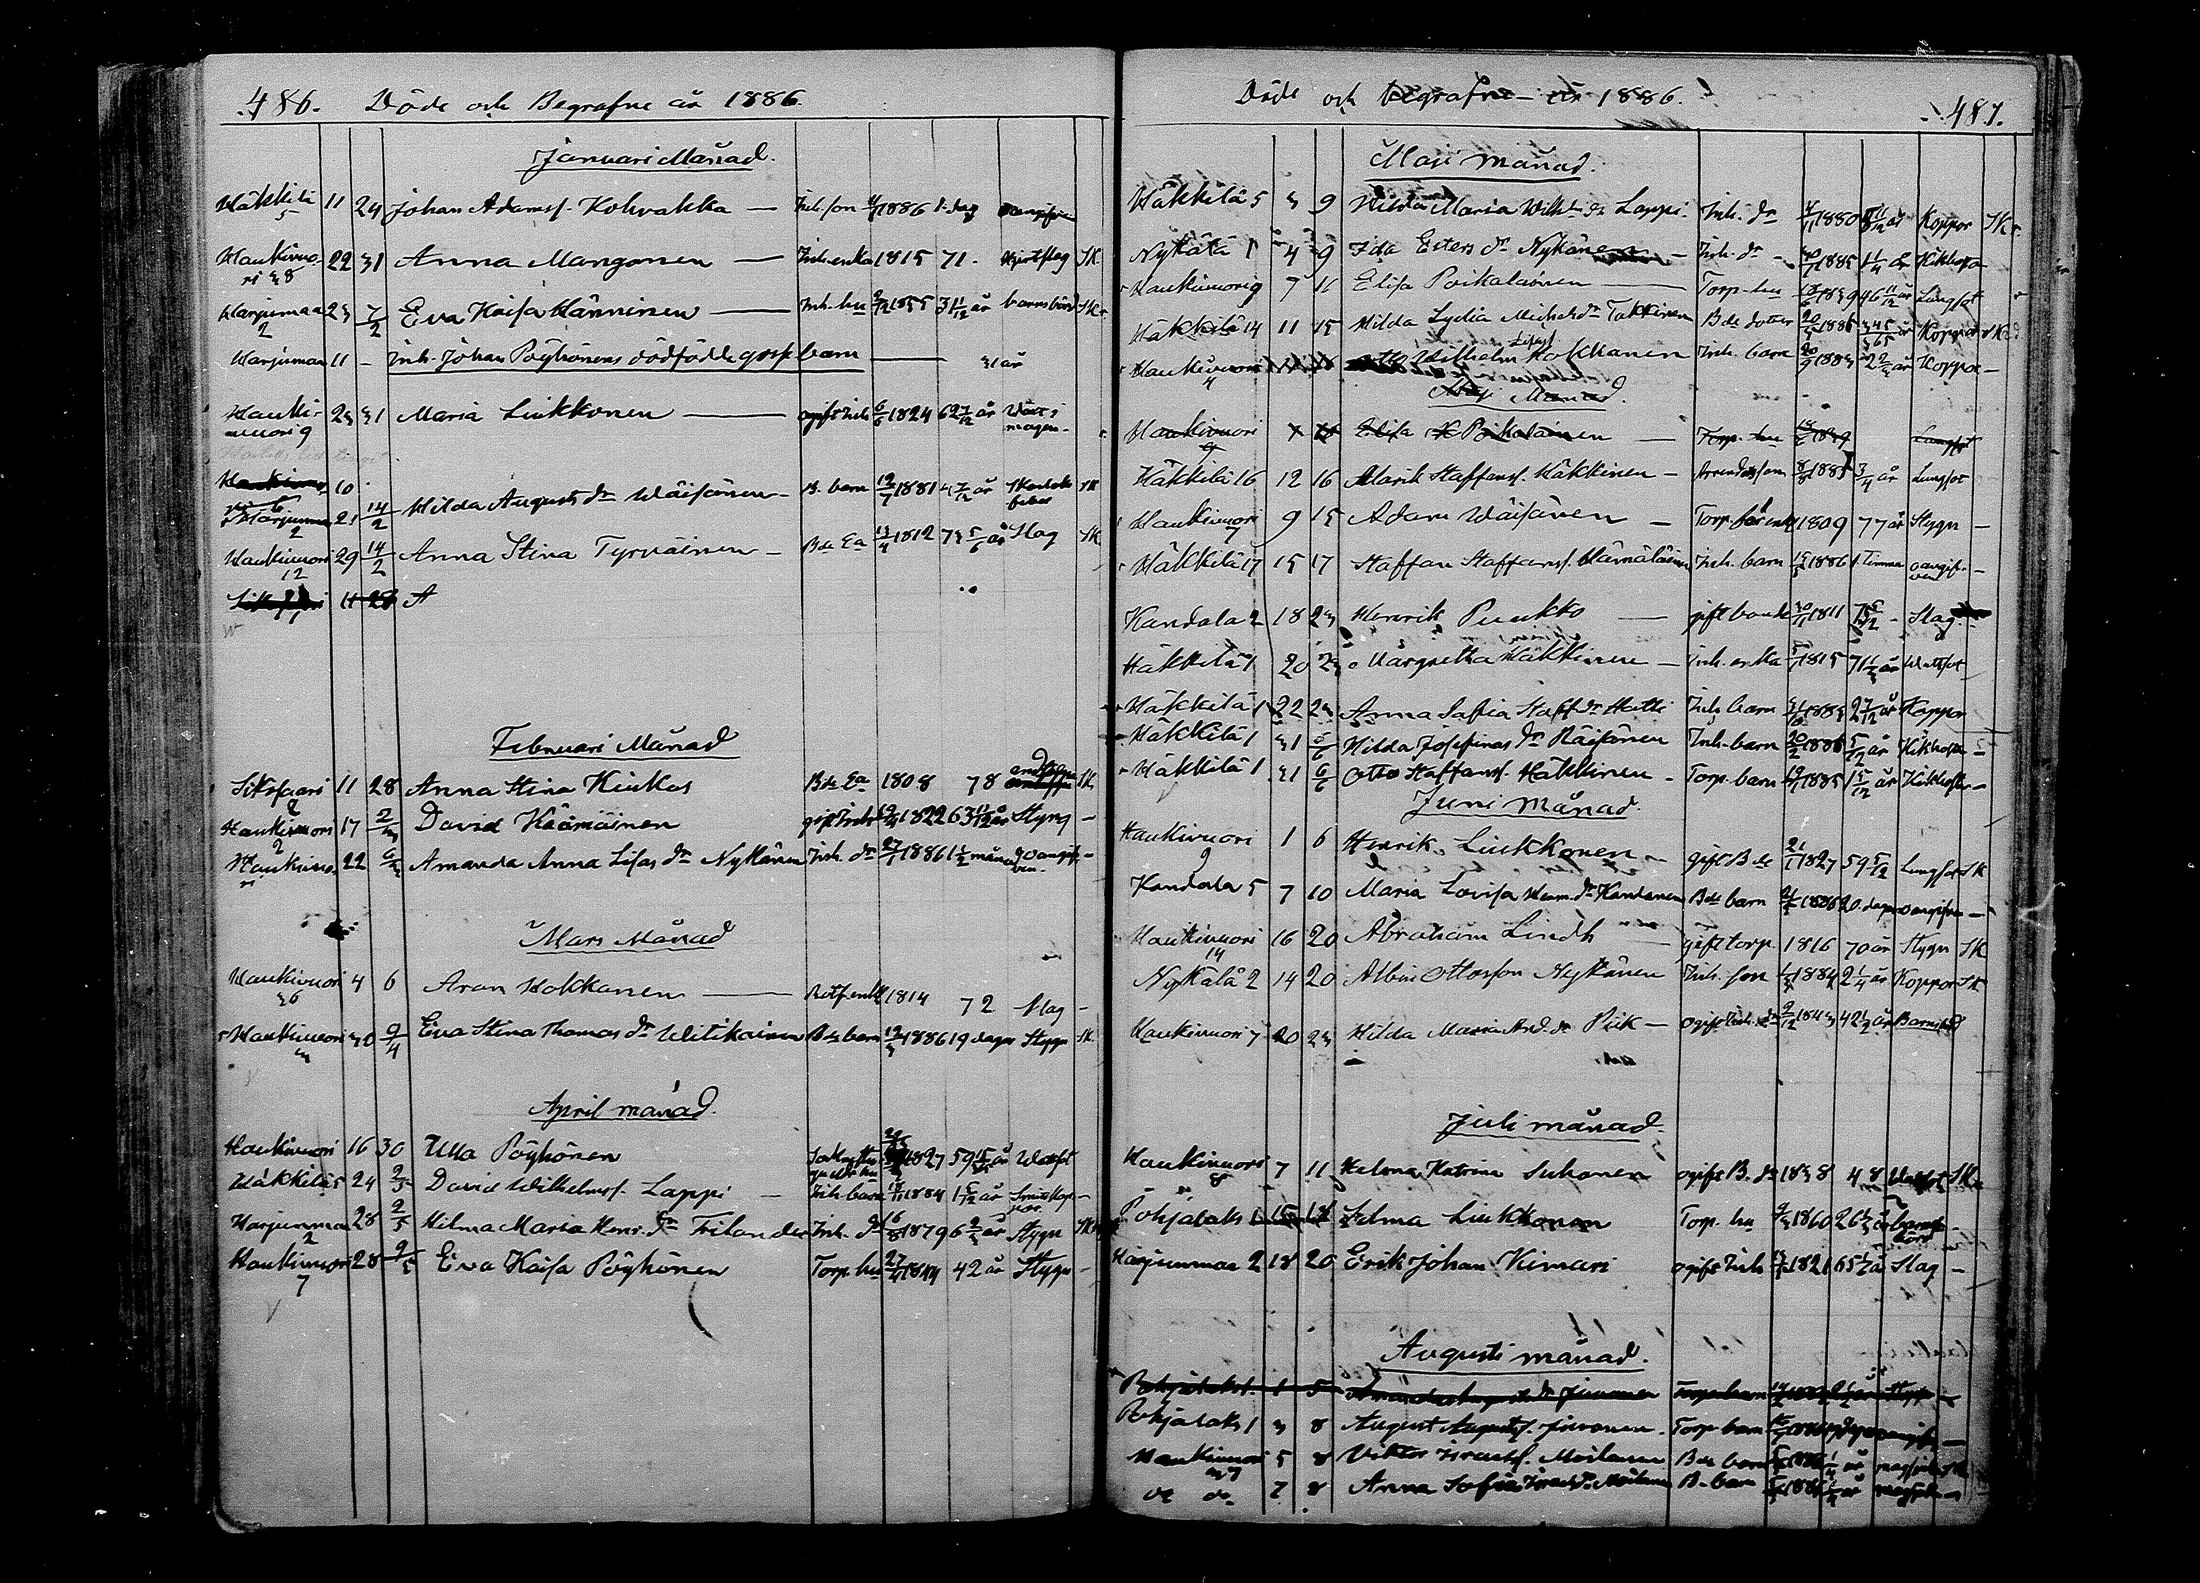 486. Döde och Begrafne år 1886.
Januari Månad.
Häkkilä 5 11 24 Johan Adamsf. Kohvakka — Inh. son 1886 1. dag oangifven
Haukivuori 38 22 31 Anna Mangonen — Inh. enka 1815 71. Hjertslag SK
Harjumaa 2 23 7/2 Eva Kaisa Hänninen — Inh. hu 1855 31 1/12 år barnsbörd SK
Harjumaa 11 - Inh. Johan Pöyhönens dödfödde gossebarn — år
Haukivuori 9 23 31 Maria Liukkonen — ogift Inh. 6/6 1824 62 7/12 år Värk i magen
Haukivuori 6 10
Harjumaa 2 21 14/2 Hilda Augusts dr Wäisänen - B. barn 12/7 1881 4 7/12 år Skarlakfeber SK
Haukivuori 12 29 14/2 Anna Stina Tyrväinen - Bde Ea 13/4 1812 73 5/6 år Slag SK.
11 28 A
Februari Månad
Siksaari 2 11 28 Anna Stina Kiukas Bde Ea 1808 78 SK
Haukivuori 2 17 2/3 David Häämäinen gift Inh. 1822 63 11/12 år Styng -
Haukivuori 22 6/3 Amanda Anna Lisas dr Nykänen Inh. dr 27/1 1886 1 1/2 månad oangifven. -
Mars Månad
Haukivuori 36 4 6 Aron Hokkanen — Rotf. enkl 1814 72 Slag -
Haukivuori 3 30 9/4 Eva Stina Thomas dr Witikainen Bde barn 12/3 1886 19 dagar Styng SK.
April månad.
Haukivuori 16 30 Ulla Pöyhönen 1827 59 år Wattsot
Häkkilä 5 24 2/5 David Wilhelmsf. Lappi - Inh. barn 1884 1 5/12 år Smittkoppor. -
Harjumaa 2 28 2/5 Hilma Maria Henr. dr Frilander Inh. dr 16/8 1879 6 2/3 år Styng SK
Haukivuori 7 28 9/5 Eva Kaisa Pöyhönen Torp. hu 27/4 1844 42 år Styng -
Döde och Begrafne - år 1886. 487.
Maji månad.
Häkkilä 5 3 9 Hilda Maria Wilh. dr Lappi. Inh. dr 1880 5 11/12 år Koppor SK
Nykälä 1 4 9 Ida Esters dr Nykänen - Inh. dr - 1885 1 1/4 år Kikhosta
Haukivuori 9 7 11 Elisa Poikalainen — Torp. hu 1839 46 11/12 år Lungsot
Häkkilä 14 11 15 Hilda Lydia Michels dr Takkinen Bde dotter 20/5 1885 år Koppor SK
Haukivuori 4 Wilhelm Hokkanen Inh. barn 20/9 1883 2 2/3 år Koppor -
Maji Månad.
Haukivuori 9 Elisa Poikalainen — Torp. hu 1839 Lungsot
Häkkilä 16 12 16 Alarik Staffansf. Häkkinen - 8/8 1885 3/4 år Lungsot
Haukivuori 7 9 15 Adam Wäisänen - Torp. får enkl 1809 77 år Styng -
Häkkilä 17 15 17 Staffan Staffansf. Hämäläinen Inh. barn 15/5 1886 1. Timme oangifven -
Kandala 2 18 23 Henrik Puukko — gift bonde 1811 - Slag
Häkkilä 1 20 23 Margretha Häkkinen - Inh. enka 1815 71 1/3 år Wattsot
Häkkilä 1 22 23 Anna Sofia Staff. dr Hatti Inh. barn 1883 2 7/12 år Koppor
Häkkilä 1 31 6/6 Hilda Josefinas dr Räisänen Inh. barn 1886 5/12 år Kikhosta -
Häkkilä 1 31 6/6 Otto Staffansf. Häkkinen - Torp. barn 1885 1 5/12 år Kikhosta -
Juni Månad.
Haukivuori 2 1 6 Henrik Liukkonen - gift Bde 21/1 1827 59 5/12 Lungsot SK
Kandala 5 7 10 Maria Lovisa Herm. dr Kandanen Bde barn 1886 20. dagar oangifven -
Haukivuori 14 16 20 Abraham Lindh — gift torp. 1816 70 år Styng SK
Nykälä 2 14 20 Albin Ottosson Nykänen Inh. son 1884 2 1/4 år Koppor SK
Haukivuori 7 20 23 Hilda Maria And. dr Piik - ogift Inh. dr 9/12 1843 42 1/2 år Barnsbörd
Juli månad.
Haukivuori 8 7 11 Helena Katrina Suhonen ogift B. dr 1838 48 Wattsot SK
Pohjalaks 1 Selma Liukkonen Torp. hu 1860 26 1/3 år barnsbörd -
Harjunmaa 2 18 20 Erik Johan Kimari ogift Inh. 1821 65 1/2 år Slag -
Augusti månad.
Pohjalaks 1. 1 5
Pohjalaks 1 3 8 August Augustsf. Jurvonen. Torp. barn -
Haukivuori 37 5 8 Viktor Israelsf. Moilanen Bde barn 1886 1/4 år
do do. 7 8 Anna Sofia Israels dr Moilanen B. barn 1886 1/4 år